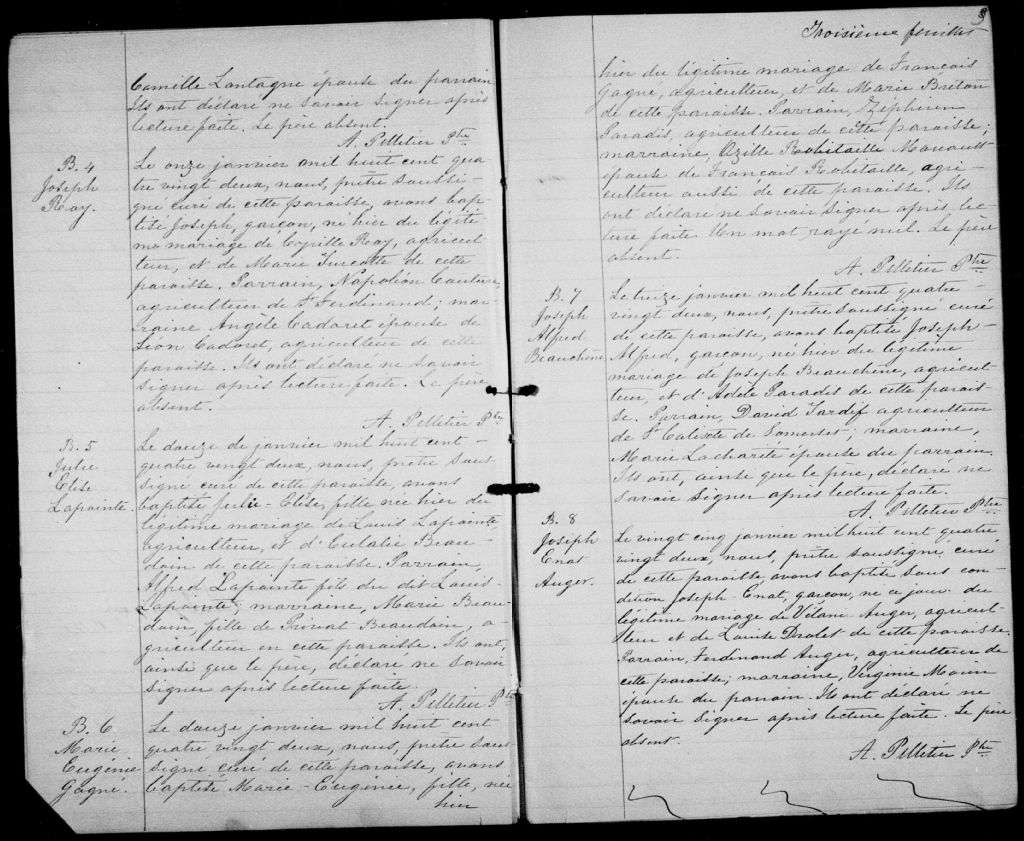 Camille Lantagne épouse du parrain.
Ils ont déclaré ne savoir signer après
lecture faite. Le père absent.
A. Pelletier Ptre
B. 4
Joseph
Roy.
Le onze janvier mil huit cent qua
tre vingt deux, nous, prêtre soussi-
gné curé de cette paraisse, avons bap-
tisé Joseph, garcon, né hier du légiti
me mariage de Cyrille Roy, agricul
teur, et de Marie Turcotte de cette
paraisse. Parrain, Napoléon Couture,
agriculteur de St Ferdinand; mar-
raine Angèle Cadoret épouse de
Léon Cadoret, agriculteur de cette
paraisse. Ils ont déclaré ne savoir
signer après lecture faite. Le père
absent.
A. Pelletier Ptre
B. 5
Julie
Elise
Lapointe.
Le douze de janvier mil huit cent -
quatre vingt deux, nous, prêtre sous
signé curé de cette paraisse, avons
baptisé Julie-Elise, fille née hier du
légitime mariage de Louis Lapointe
agriculteur, et d'Eulalie Beau-
doin de cette paraisse. Parrain,
Alfred Lapointe fils du dit Louis
Lapointe; marraine, Marie Beau-
doin, fille de Privat Beaudoin, a-
griculteur en cette paraisse. Ils ont,
ainsi que le père, déclaré ne savoir
signer après lecture faite.
A. Pelletier Ptre
B. 6
Marie
Eugénie
Gagné.
Le douze janvier mil huit cent
quatre vingt deux, nous, prêtre sous
signé curé de cette paraisse, avons
baptisé Marie-Eugénie, fille, née
hier
8
Troisième feuillet
hier du légitime mariage de François
Gagné, agriculteur, et de Marie Breton
de cette paraisse. Parrain, Zepherin
Paradis, agriculteur de cette paraisse;
marraine, Ozille Robitaille
épouse de Francois Robitaille, agri-
culteur aussi de cette paraisse. Ils
ont déclaré ne savoir signer après lec
ture faite Un mot rayé nul. Le père
absent.
A. Pelletier Ptre
B. 7
Joseph
Alfred
Beauchêne
Le treize janvier mil huit cent quatre -
vingt deux, nous, prêtre soussigné curé
de cette paraisse, avons baptisé Joseph-
Alfred, garcon, né hier du légitime
mariage de Joseph Beauchêne, agricul
teur, et d'Adèle Paradis de cette parais-
se. Parrain, David Tardif agriculteur
de St Calixte de Somerset; marraine,
Marie Lacharité épouse du parrain.
Ils ont, ainsi que le père, déclaré ne
savoir signer après lecture faite.
A. Pelletier Ptre
B. 8
Joseph
Enat
Auger.
Le vingt cinq janvier mil huit cent quatre
vingt deux, nous, prêtre soussigné curé
de cette paraisse, avons baptisé sous con
dition Joseph-Enat, garcon, né ce jour du
légitime mariage de Vélani Auger, agricul-
teur et de Louise Drolet de cette paraisse.
Parrain, Ferdinand Auger, agriculteur de
cette paraisse; marraine, Virginie Morin
épouse du parrain. Ils ont déclaré ne
savoir signer après lecture faite. Le père
absent.
A. Pelletier Ptre